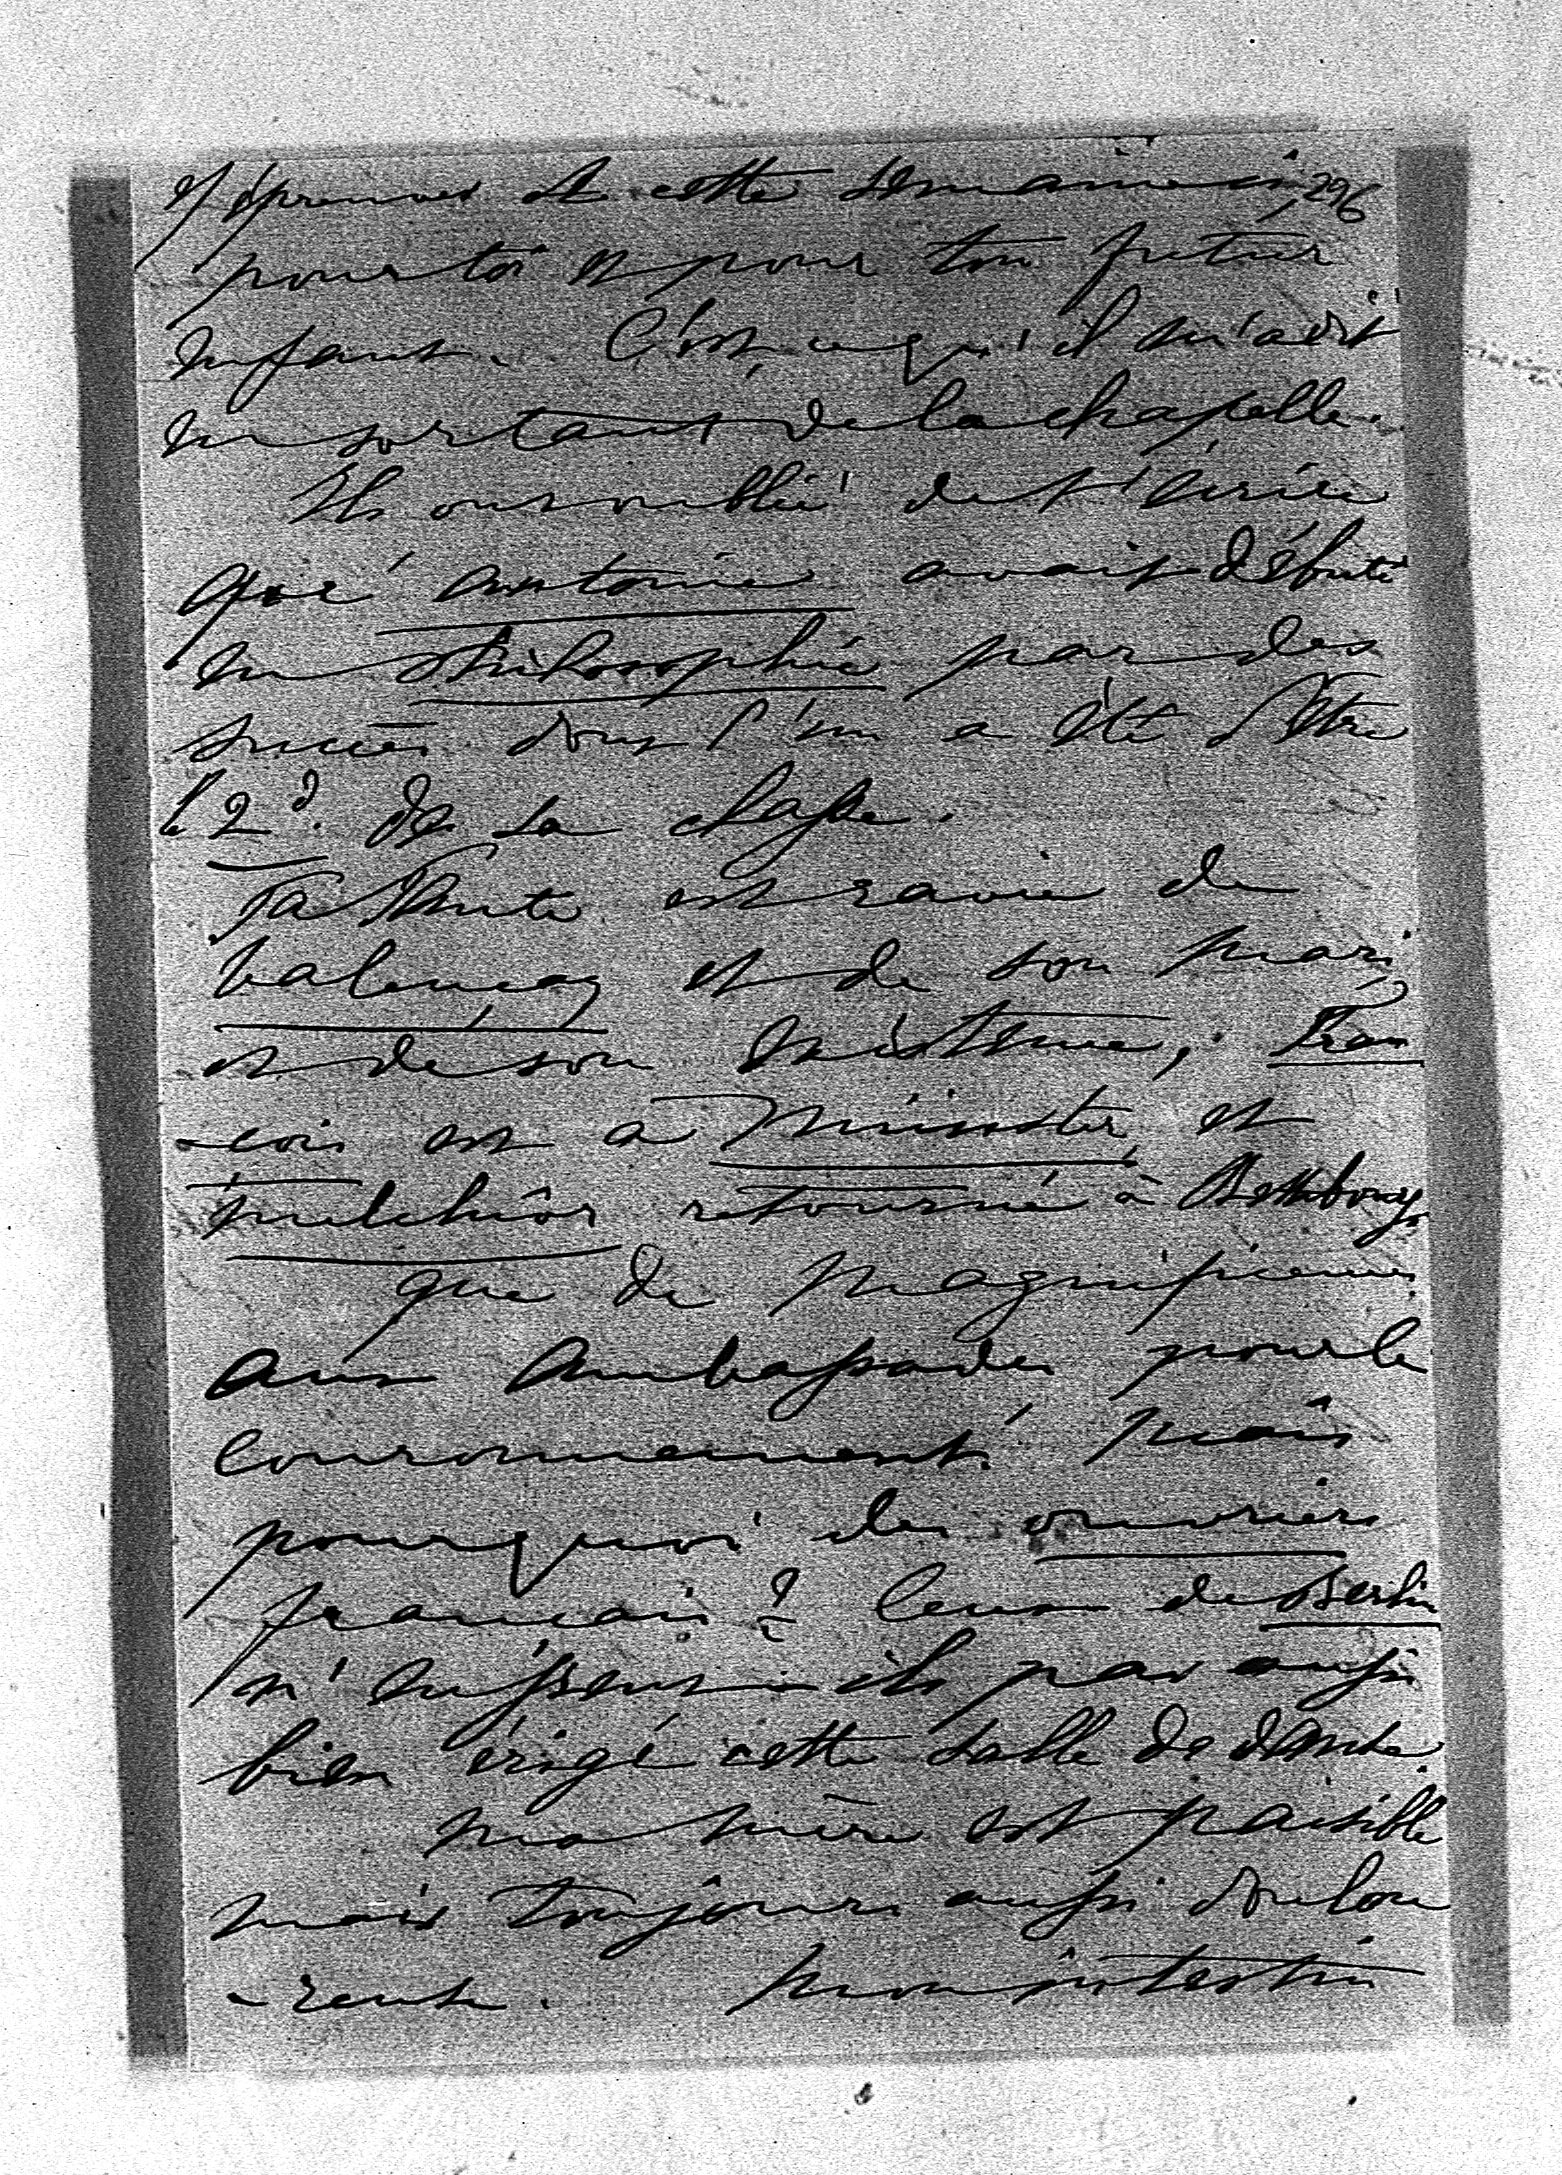 et épreuves de cette semaine ci 296
pour toi et pour ton futur
enfant. C'est ce qu'il m'a dit
en sortant de la chapelle.
Ils ont oublié de t'écrire
que antoine avait débuté
en philosophie par des
succès dont l'un a été d'être
le 2d. de sa classe.
Ta tante est ravie de
valençay et de son mari
et de son existence, Fran
-cois est a Münster et
melchior retourné à Bettbourg
que de magnificences
aux ambassades pour le
couronnement! mais
pourquoi des ouvriers
francais? ceux de Berlin
n'eussent-ils pas aussi
bien érigé cette salle de danse.
ma mère est paisible
mais toujours aussi doulou
-reuse. mon intestin